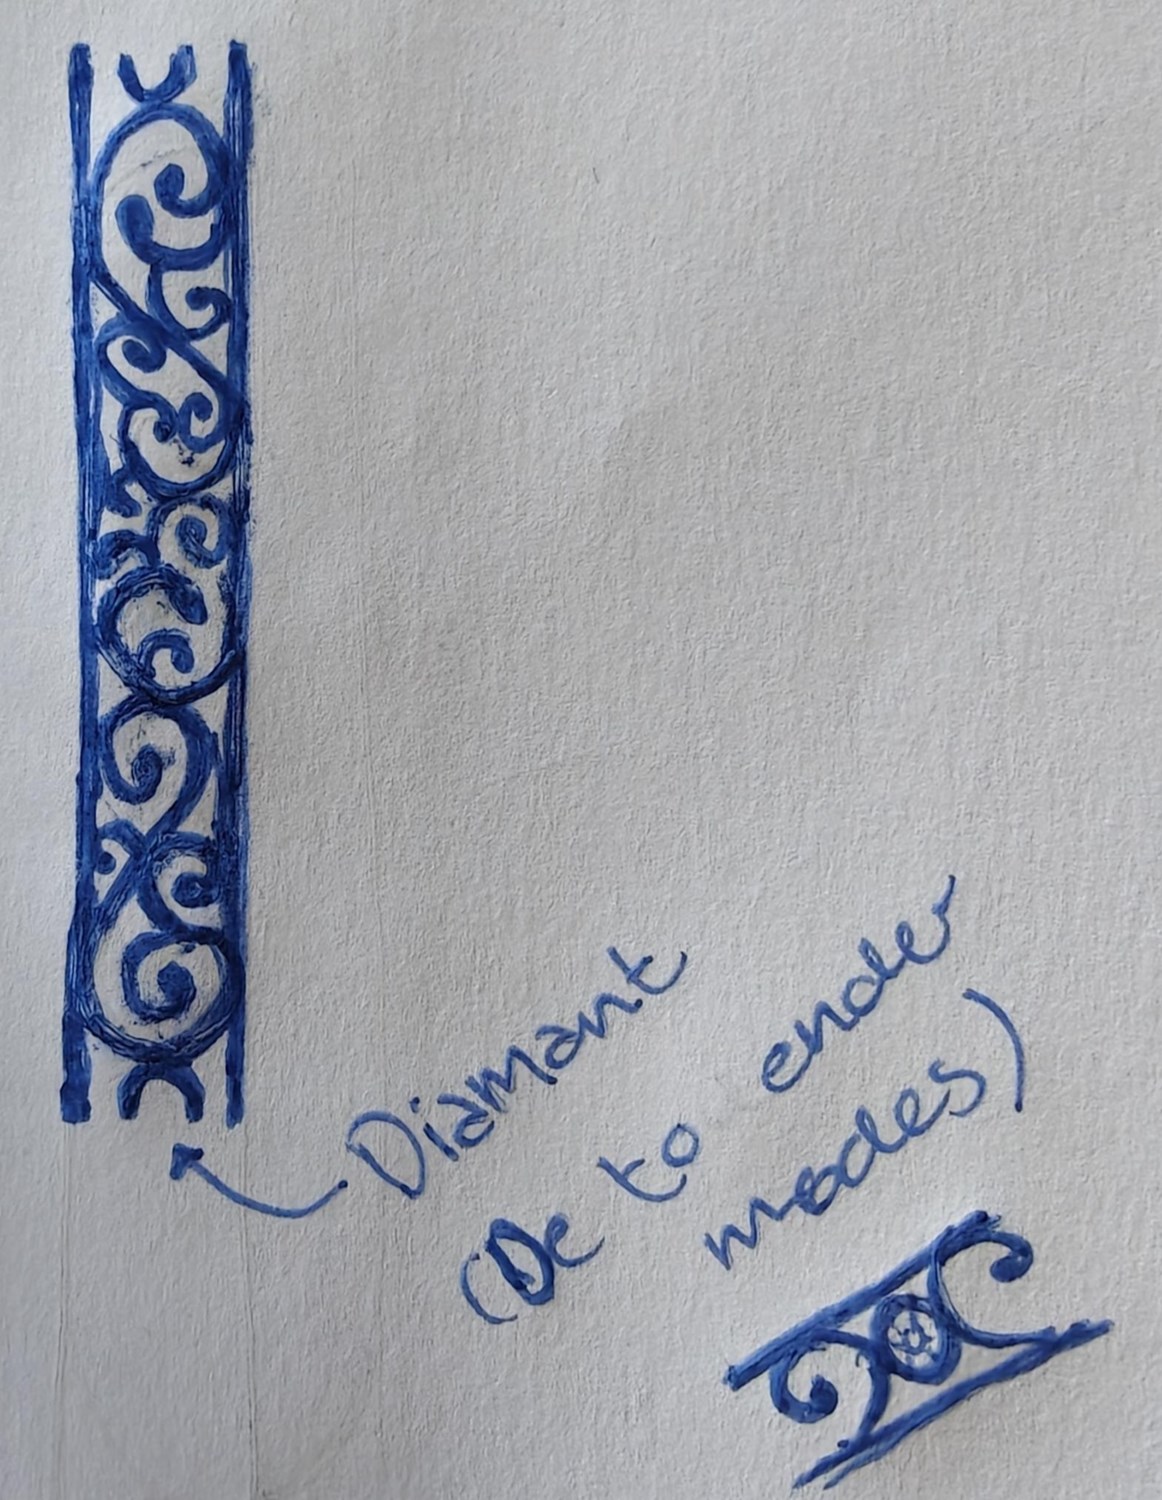 Diamant
(De to ender
mødes)